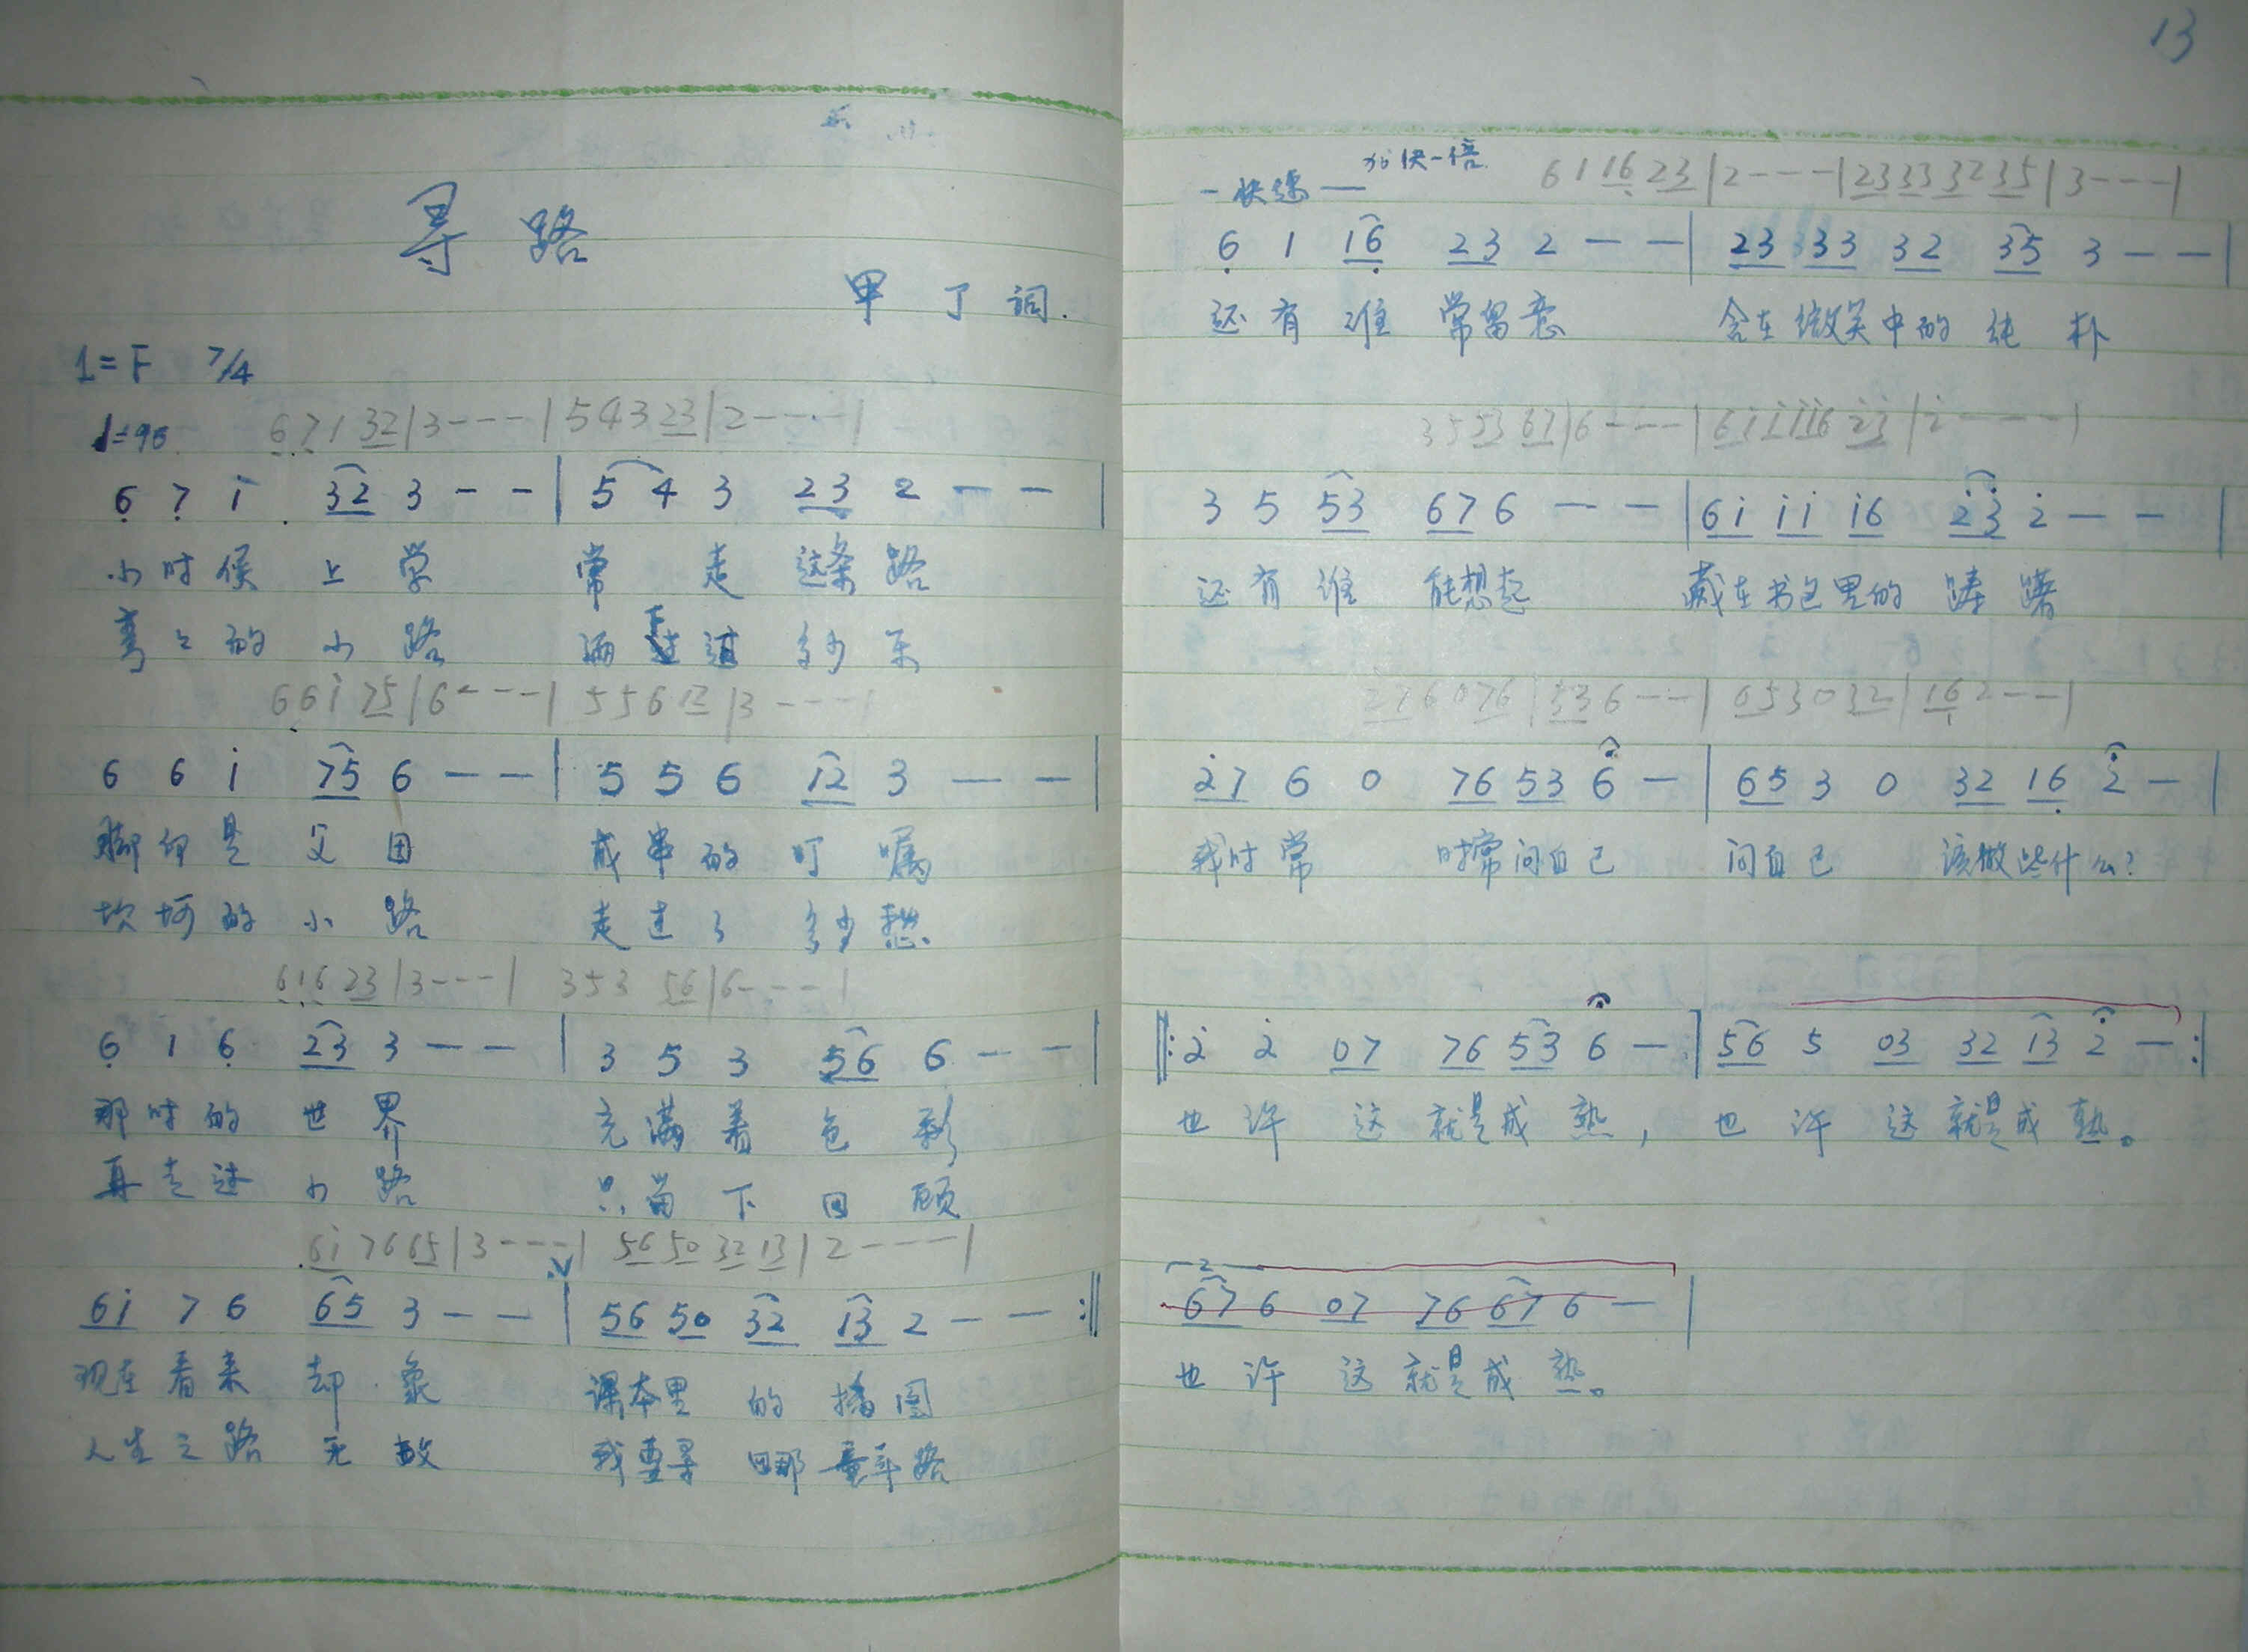 寻路
甲丁词.
1=F 7/4
♩=96
6 7 1 32|3---|5 4 3 23|2----|
6 7 i 32 3 - - | 5 4 3 23 2 - - |
小时候上学 常走这条路
弯々的小路 洒下过多少乐
6 6 i 75|6----|5 5 6 12|3----|
6 6 i 75 6 - - | 5 5 6 12 3 - - |
脚印是父母 成串的叮嘱
坎坷的小路 走过了多少愁
6 1 6 23|3---| 3 5 3 56|6----|
6 1 6 23 3 - - | 3 5 3 56 6 - - |
那时的世界 充满着色彩
再走过小路 只留下回顾
6i 7 6 65|3----| 56 50 32 13|2----|
6i 7 6 65 3 - - | 56 50 32 13 2 - - :||
现在看来却象 课本里的插图
人生之路无数 我要寻回那童年路
13
-快速— 加快一倍
6 1 16 23|2----|23 33 32 35|3---|
6 1 16 23 2 - - | 23 33 32 35 3 - - |
还有谁常留意 含在微笑中的纯朴
3 5 53 67|6---|6i ii i6 23|2----|
3 5 53 67 6 - - | 6i ii i6 23 2 - - |
还有谁能想起 藏在书包里的踌躇
27 6 0 76|53 6--|65 3 0 32|16 2--|
27 6 0 76 53 6 - | 65 3 0 32 16 2 - |
我时常 时常问自己 问自己 该做些什么?
||: 2 2 07 76 53 6 - | 56 5 03 32 13 2 - :|
也许这就是成熟, 也许这就是成熟。
2
67 6 07 76 67 6 - |
也许这就是成熟。